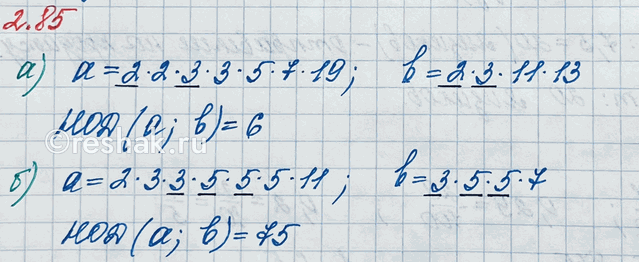 2.85
а) a = 2·2·3·3·5·7·19; b = 2·3·11·13
НОД (a; b) = 6
reshak.ru
б) a = 2·3·3·5·5·5·11; b = 3·5·5·7
НОД (a; b) = 75